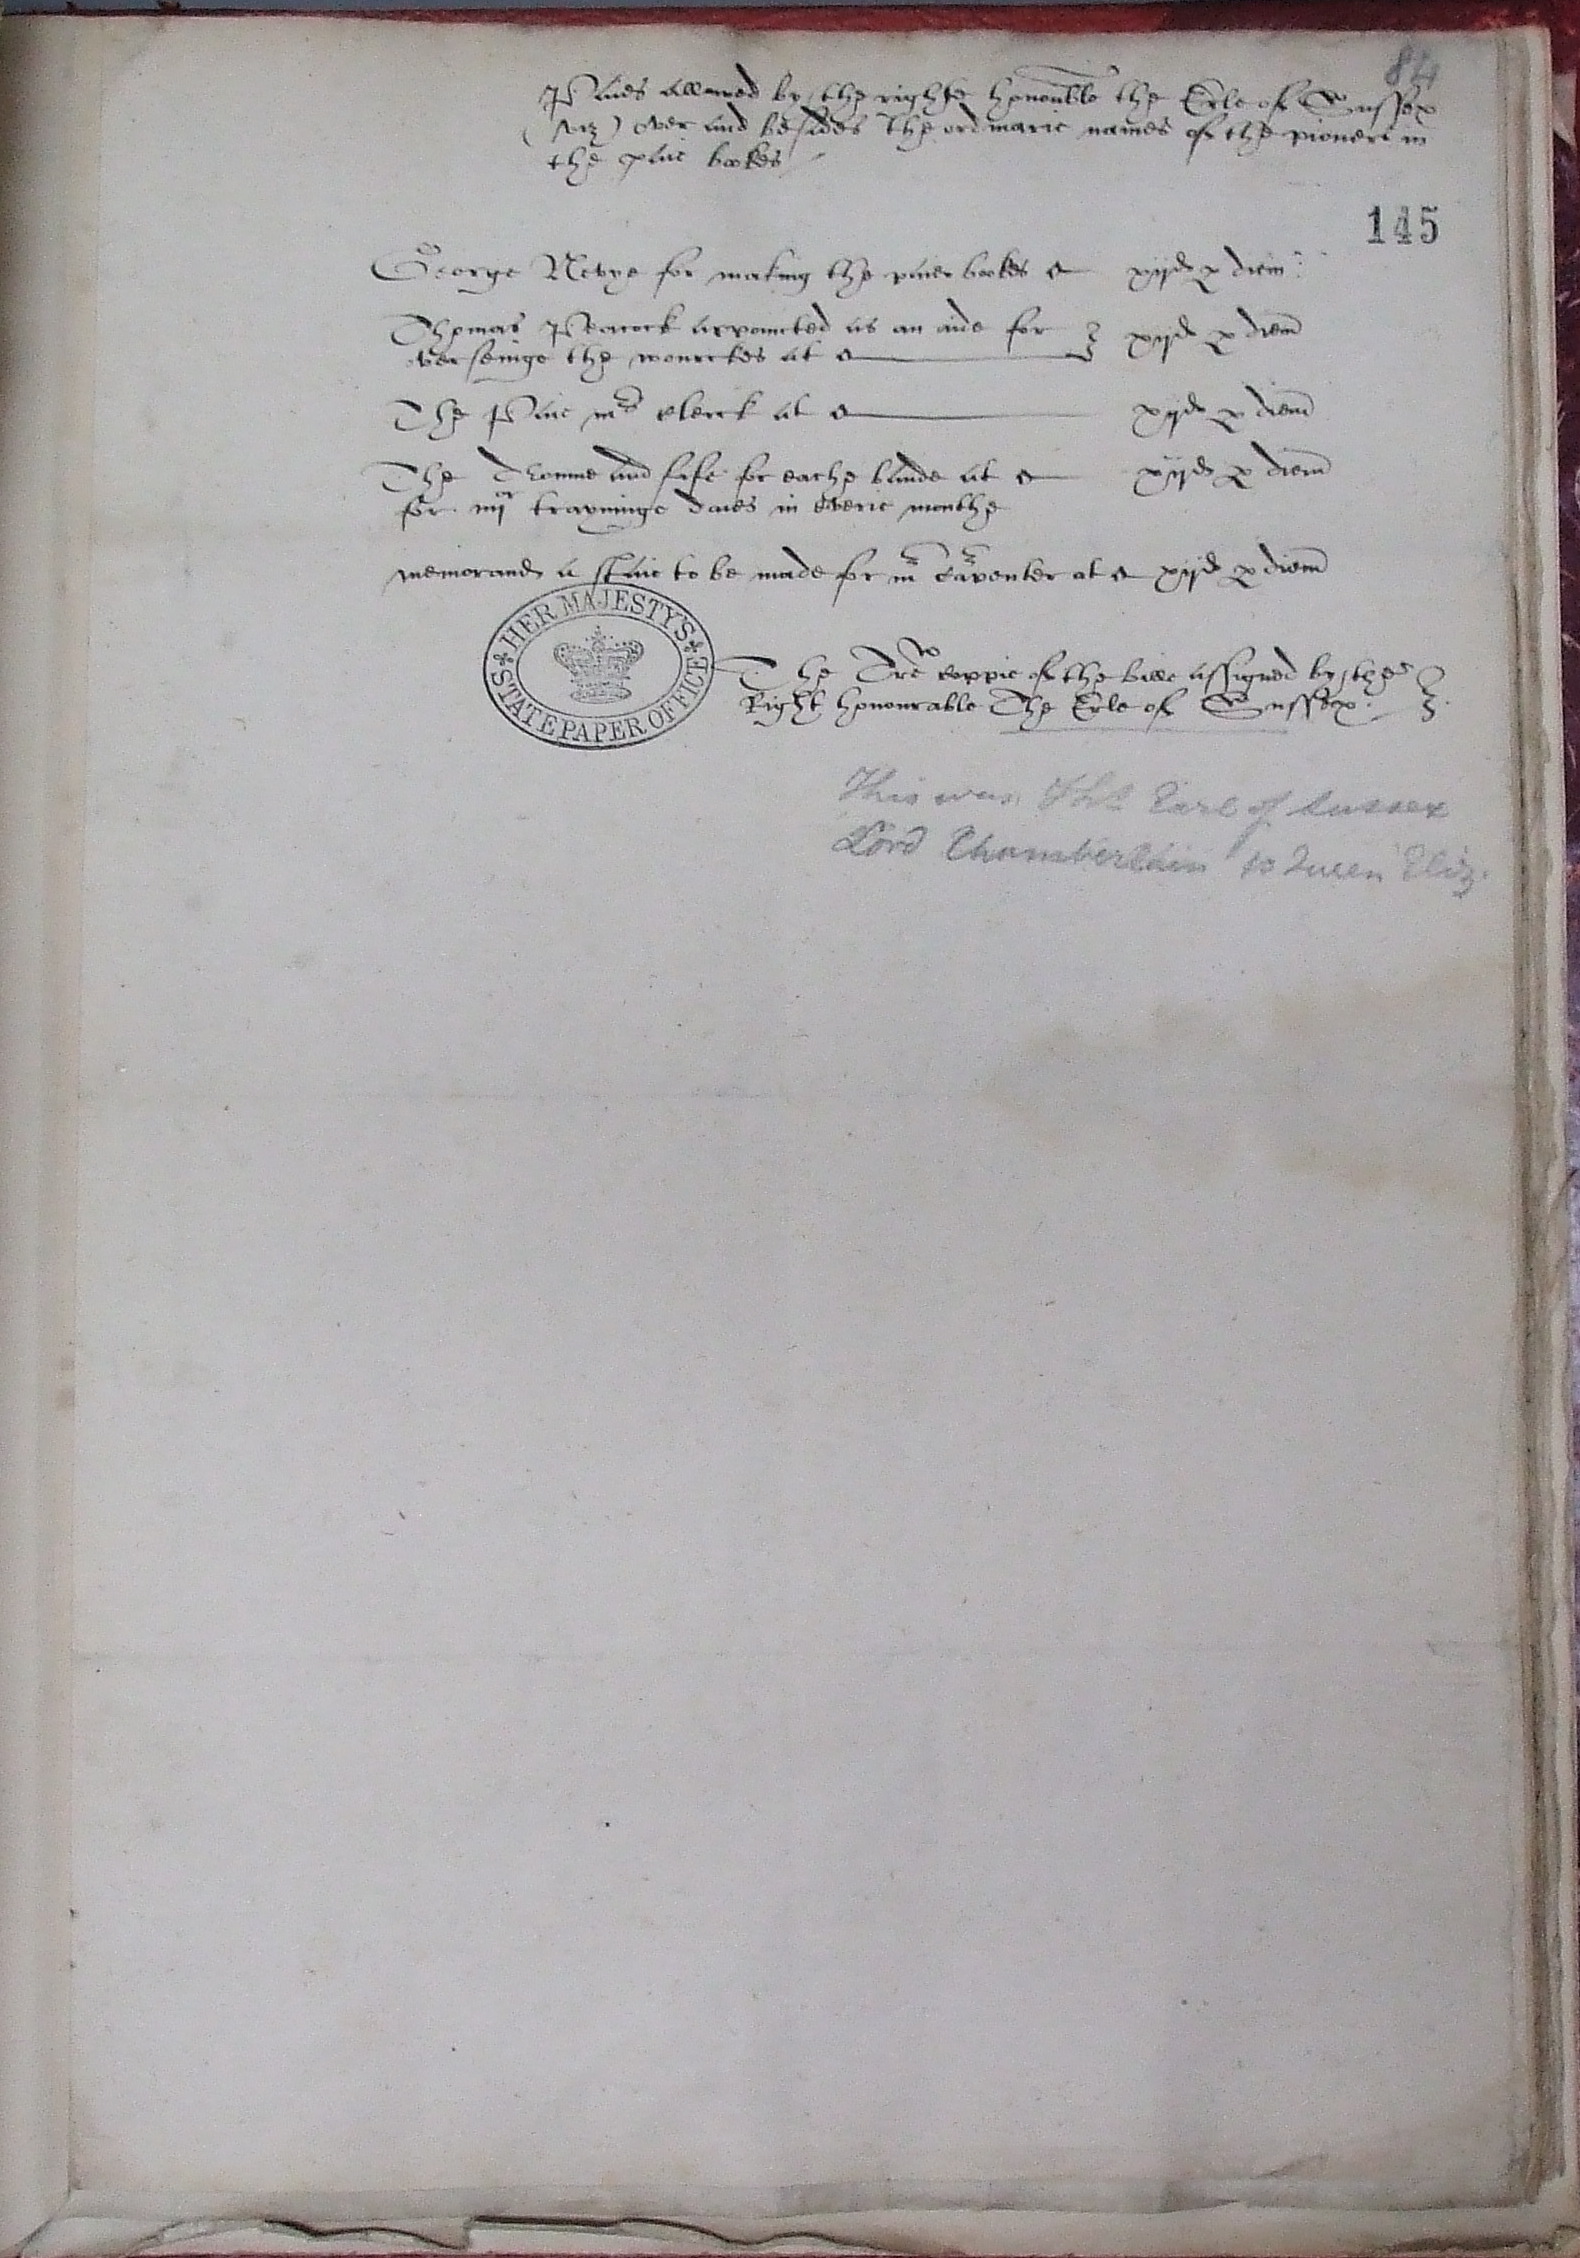 84
Paies allowed by the righte honourable the Erle of Sussex
(viz) over and besides the ordinarie names of the pioners in
the paie bookes
145
George Nevye for making the paier bookes a xijd p diem
Thomas Peacock appoincted as an aide for
overseinge the wourckes at a xijd p diem
The Paie mr clerck at a xijd p diem
The dromme and fife for eache bande at a xijd p diem
for iiij trayninge daies in everie monthe
memorand a paie to be made for mr carpenter at a xijd p diem
HER MAJESTY'S STATE PAPER OFFICE
The coppie of the bill assigned by the
Right honourable The Erle of Sussex
This was Thos Earl of Sussex
Lord Chamberlain to Queen Eliz.